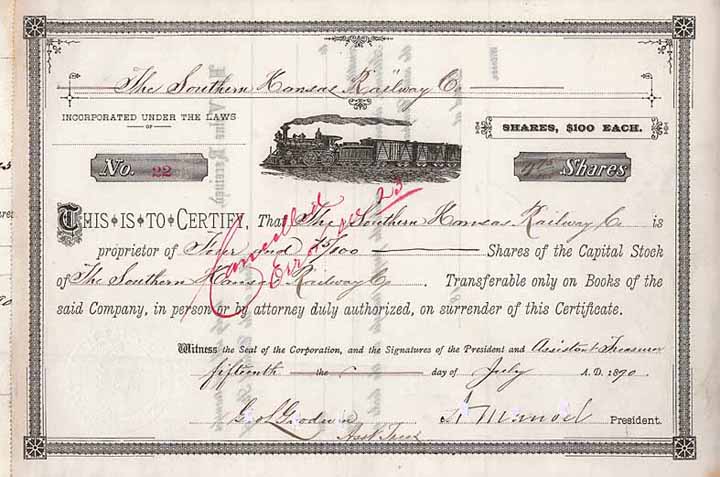 The Southern Kansas Railway Co
INCORPORATED UNDER THE LAWS
OF
SHARES, $100 EACH.
No. 22
Shares
THIS IS TO CERTIFY, That The Southern Kansas Railway Co is
proprietor of Four and 75/100 Shares of the Capital Stock
of The Southern Kansas Railway Co. Transferable only on Books of the
said Company, in person or by attorney duly authorized, on surrender of this Certificate.
Cancelled
Error no 23
Witness the Seal of the Corporation, and the Signatures of the President and Assistant Treasurer
fifteenth the day of July A. D. 1890.
Geo L Goodwin
Asst Treas
President.